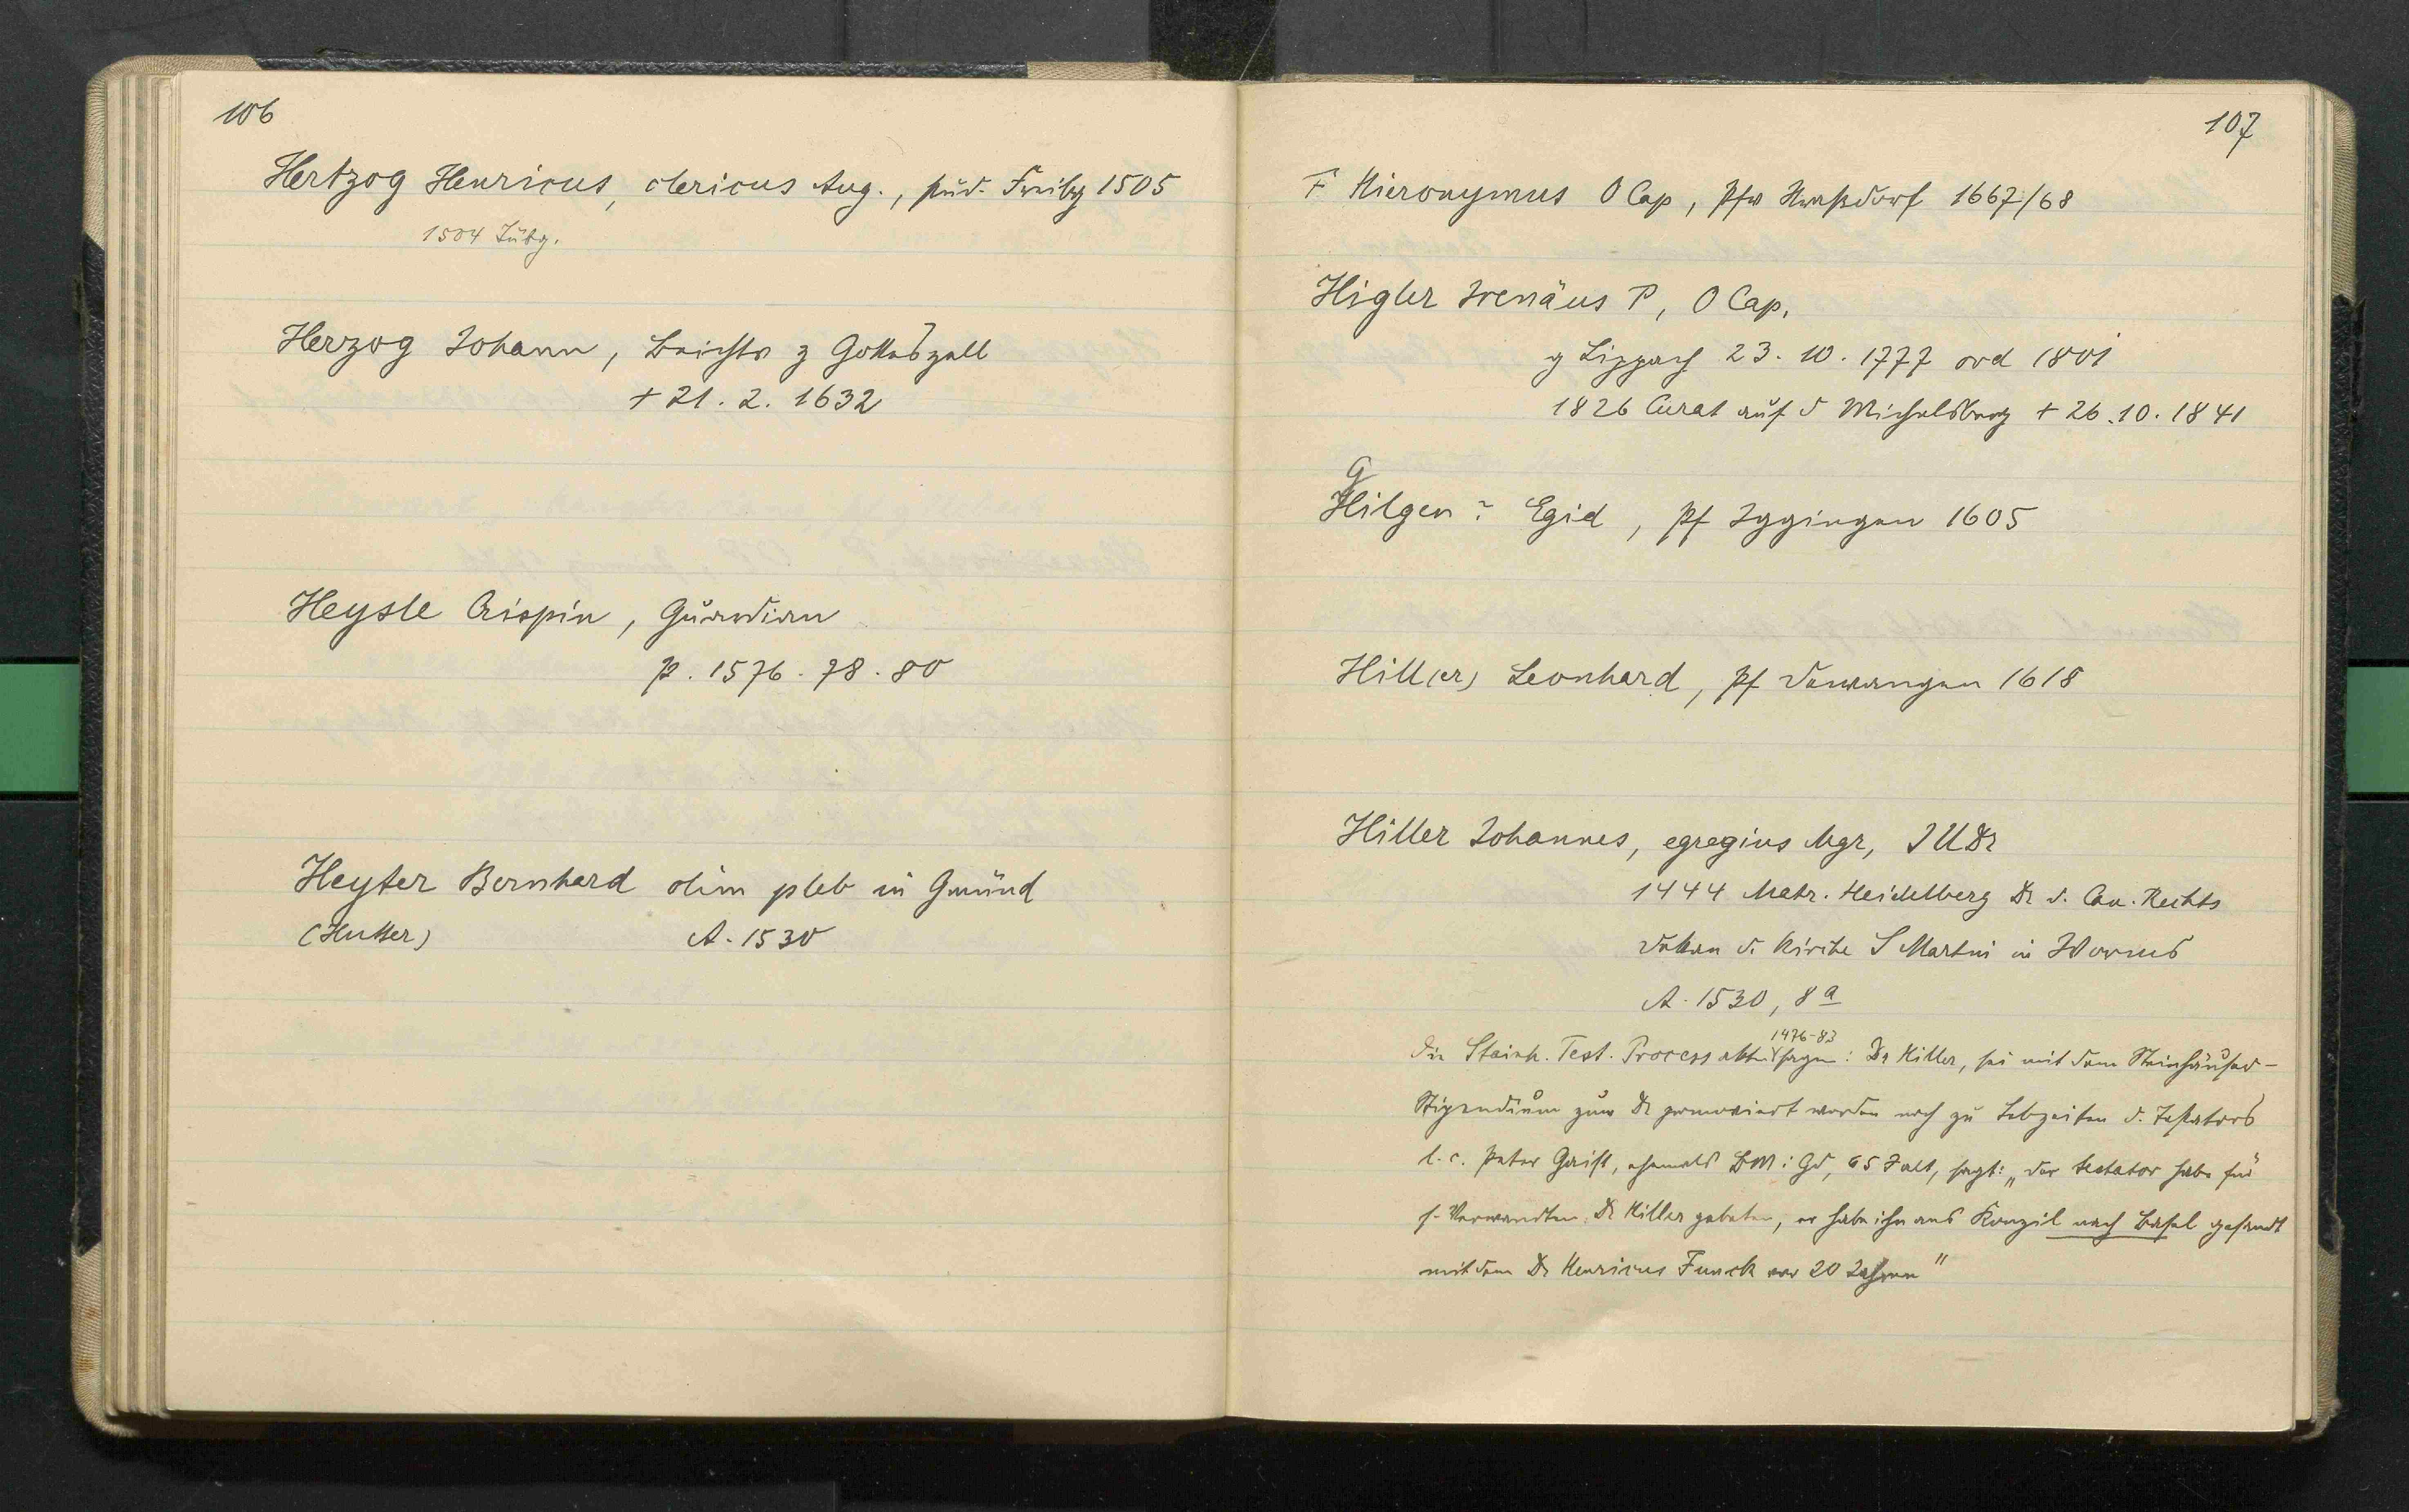 106
Hertzog Henricus, clericus Aug., stud. Freibg 1505
1504 Tübg.
Herzog Johann, Beichtv z Gotteszell
+ 21. 2. 1632
Heysle Crispin, Guardian
p. 1576. 78. 80
Heyter Bernhard olim pleb in Gmünd
(Hutter) A. 1530
107
F Hieronymus O Cap, Pfv Straßdorf 1667/68
Higler Irenäus P, O Cap,
g Lippach 23. 10. 1777 ord 1801
1826 Curat auf d Michelsberg + 26. 10. 1841
g
Hilgen? Egid, Pf Iggingen 1605
Hill(er) Leonhard, Pf Dewangen 1618
Hiller Johannes, egregius Mgr, I U Dr
1444 Matr. Heidelberg Dr d. Can. Rechts
Dekan d. Kirche S Martini in Worms
A. 1530, 8 a
1476-83
Die Steinh. Test. Process akten sagen: Dr Hiller, sei mit dem Steinhäuser-
Stipendium zum Dr promoviert worden noch zu Lebzeiten d. Testators
l. c. Peter Geist, ehemals BM i Gd, 65 J alt, sagt: „der testator habe für
s. Verwandten Dr Hiller gebeten, er habe ihn ans Konzil nach Basel gesandt
mit dem Dr Henricus Funck vor 20 Jahren"